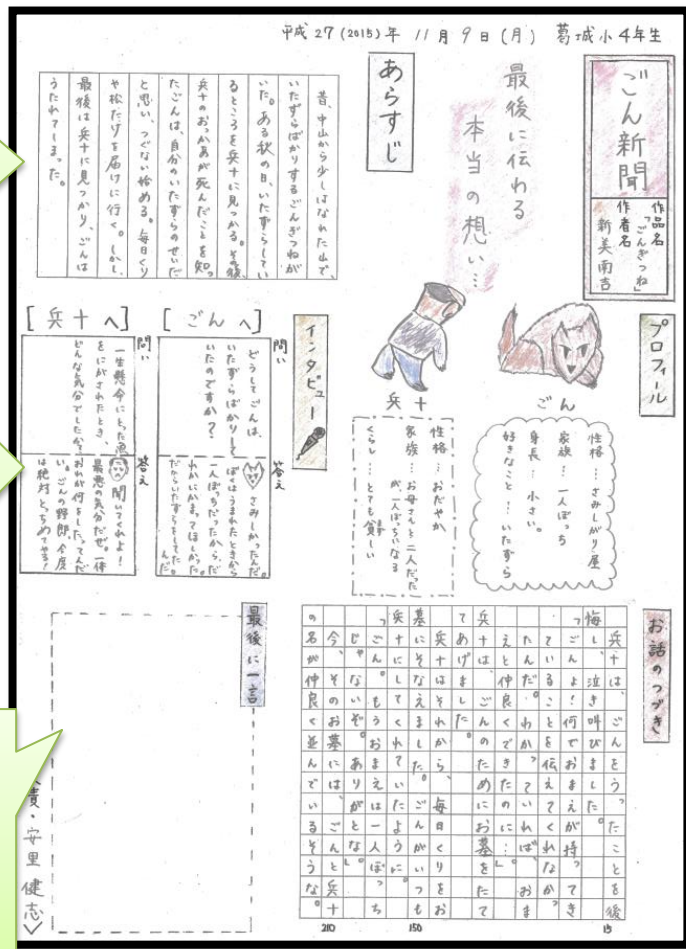 平成27(2015)年 11月9日(月) 葛城小4年生
ごん新聞
作品名
「ごんぎつね」
作者名
新美南吉
最後に伝わる
本当の想い…
あらすじ
昔、中山から少しはなれた山で、
いたずらばかりするごんぎつねが
いた。ある秋の日、いたずらしてい
るところを兵十に見つかる。その後、
兵十のおっかあが死んだことを知っ
たごんは、自分のいたずらのせいだ
と思い、つぐない始める。毎日くり
や松たけを届けに行く。しかし、
最後は兵十に見つかり、ごんは
うたれてしまった。
プロフィール
ごん
性格…さみしがり屋
家族…一人ぼっち
身長…小さい。
好きなこと…いたずら
兵十
性格…おだやか
家族…お母さんと二人だった
が一人ぼっちになる
くらし…とても貧しい
インタビュー
[ごんへ]
問い
どうしてごんは、
いたずらばかりして
いたのですか?
答え
さみしかったんだ。
ぼくはうまれたときから
一人ぼっちだったから、だ
れかにかまってほしかった。
だからいたずらをしてた
んだ。
[兵十へ]
問い
一生懸命にとった魚
をにがされたとき、
どんな気分でしたか?
答え
聞いてくれよ!
最悪の気分だぜ。一体
おれが何をしたってんだ
い。ごんの野郎、今度
は絶対とっちめてやる!
お話のつづき
兵十は、ごんをうったことを後
悔し、泣き叫びました。
「ごんよ!何でおまえが持ってき
ていることを伝えてくれなかっ
たんだ。わかっていれば、おま
えと仲良くできたのに…」。
兵十は、ごんのためにお墓をたて
てあげました。
兵十はそれから、毎日くりをお
墓にそなえました。ごんがいつも
兵十にしてくれていたように。
「ごん。もうおまえは一人ぼっち
じゃないぞ。ありがとな」。
今、そのお墓には、ごんと兵十
の名が仲良く並んでいるそうな。
15
150
210
最後に一言
責・安里健志>